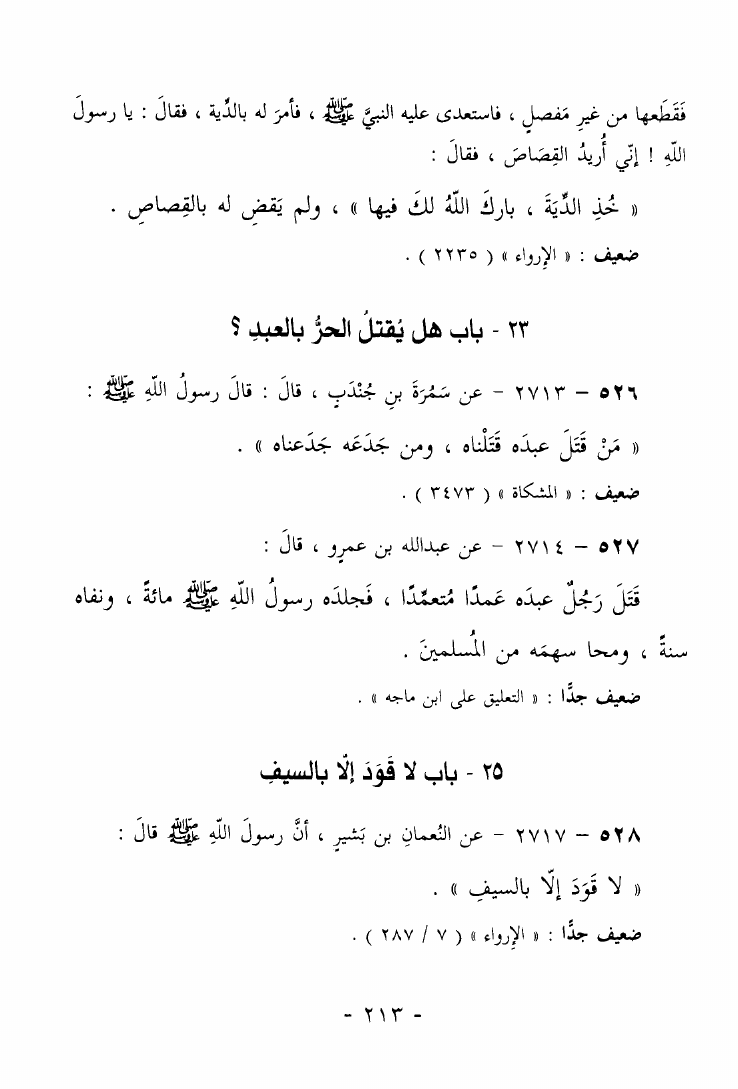 فَقَطَعها من غيرِ مَفصلٍ ، فاستعدى عليه النبيَّ ﷺ ، فأمرَ له بالدِّية ، فقالَ : يا رسولَ
اللّهِ ! إنّي أُريدُ القِصَاصَ ، فقالَ :
« خُذِ الدِّيَةَ ، باركَ اللّهُ لكَ فيها » ، ولم يَقضِ له بالقِصاصِ .
ضعيف : « الإرواء » ( ٢٢٣٥ ) .
٢٣ - باب هل يُقتلُ الحرُّ بالعبدِ ؟
٥٢٦ – ٢٧١٣ – عن سَمُرَةَ بنِ جُنْدَبٍ ، قالَ : قالَ رسولُ اللّهِ ﷺ :
« مَنْ قَتَلَ عبدَه قَتَلْناه ، ومن جَدَعَه جَدَعناه » .
ضعيف : « المشكاة » ( ٣٤٧٣ ) .
٥٢٧ – ٢٧١٤ – عن عبدالله بن عمرٍو ، قالَ :
قَتَلَ رَجُلٌ عبدَه عَمدًا مُتعمِّدًا ، فَجلدَه رسولُ اللّهِ ﷺ مائةً ، ونفاه
سنةً ، ومحا سهمَه من المُسلمينَ .
ضعيف جدًّا : « التعليق على ابن ماجه » .
٢٥ - باب لا قَوَدَ إلّا بالسيفِ
٥٢٨ – ٢٧١٧ – عن النُعمانِ بن بَشيرٍ ، أنَّ رسولَ اللّهِ ﷺ قالَ :
« لا قَوَدَ إلّا بالسيفِ » .
ضعيف جدًّا : « الإرواء » ( ٧ / ٢٨٧ ) .
- ٢١٣ -